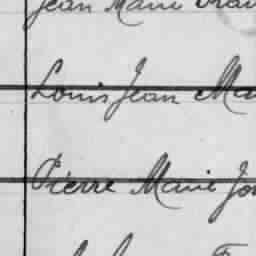 Jean Marie
Louis Jean Ma
Pierre Marie Jo